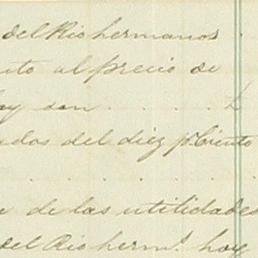 del Rio hermanos .
nto al precio de
ay son . . . . £
ados del diez p.Ciento
. . . . .
e de las utilidades
del Rio herm.s hoy